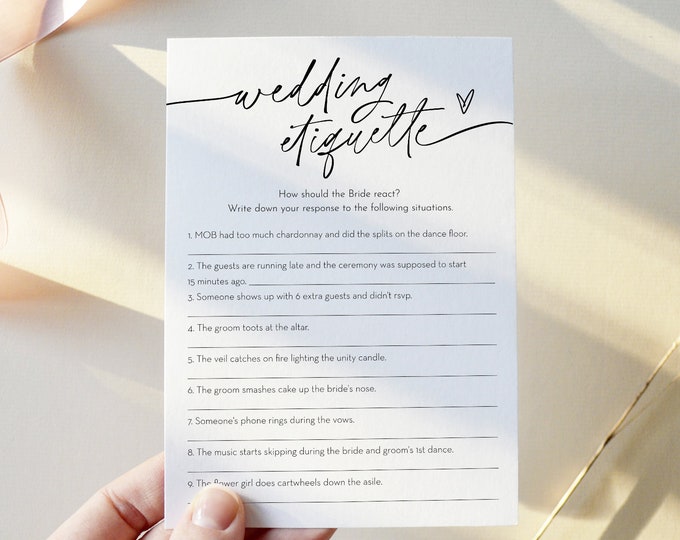 wedding
etiquette
How should the Bride react?
Write down your response to the following situations.
1. MOB had too much chardonnay and did the splits on the dance floor.
2. The guests are running late and the ceremony was supposed to start
15 minutes ago.
3. Someone shows up with 6 extra guests and didn't rsvp.
4. The groom toots at the altar.
5. The veil catches on fire lighting the unity candle.
6. The groom smashes cake up the bride's nose.
7. Someone's phone rings during the vows.
8. The music starts skipping during the bride and groom's 1st dance.
9. The flower girl does cartwheels down the asile.